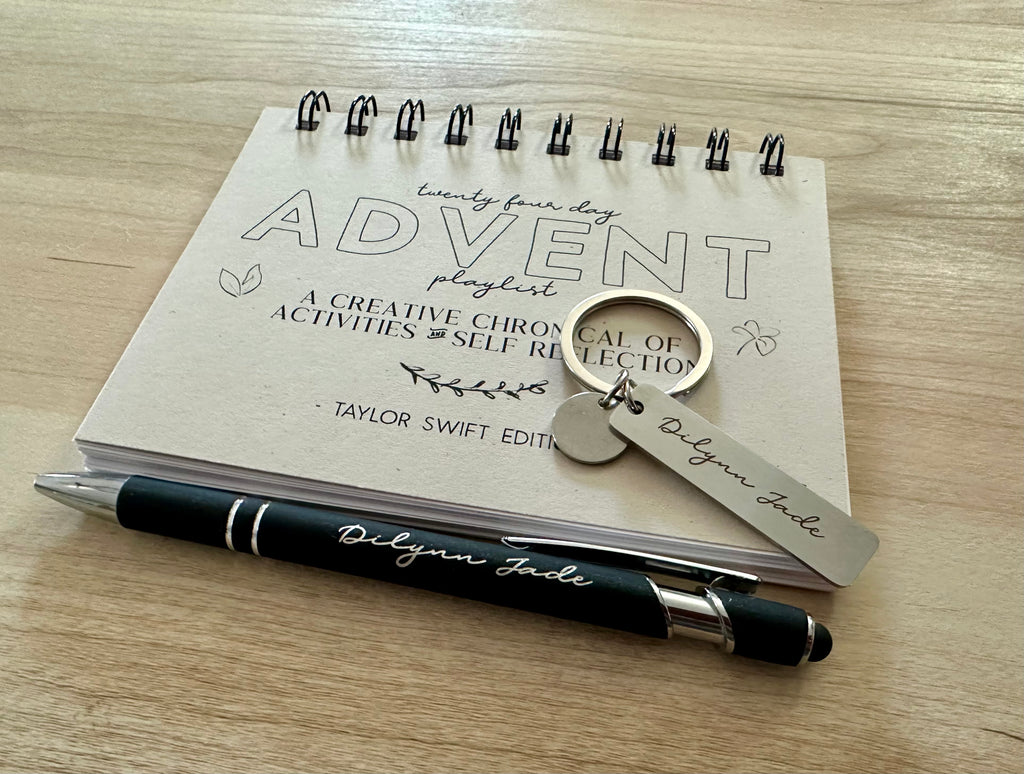 twenty four day
ADVENT
playlist
A CREATIVE CHRONICAL OF
ACTIVITIES AND SELF REFLECTION
TAYLOR SWIFT EDITI
Dilynn Jade
Dilynn Jade